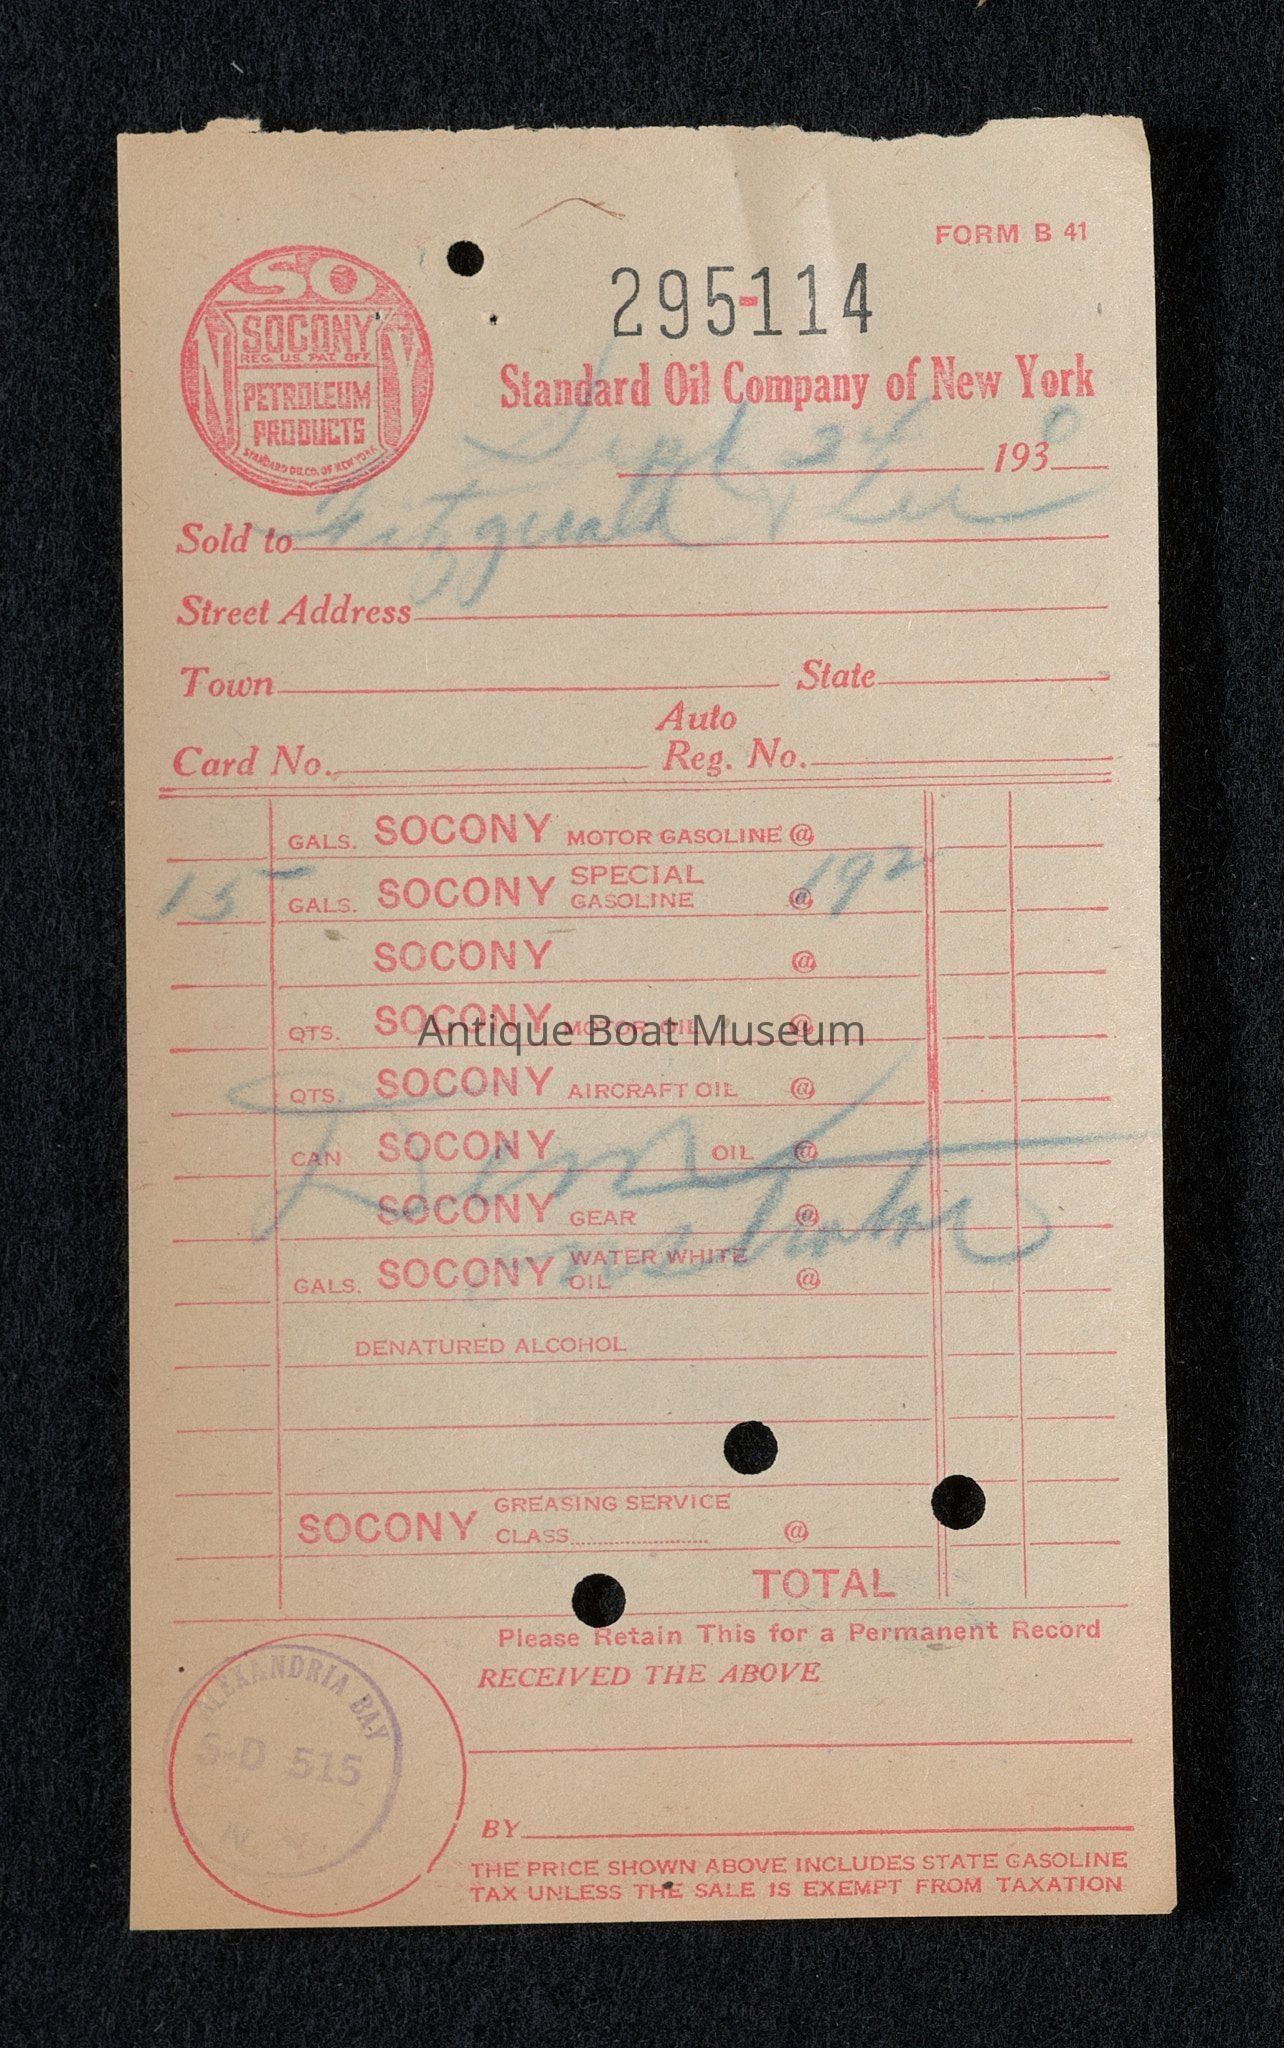 FORM B 41
SO
SOCONY
REG. U.S. PAT. OFF.
PETROLEUM
PRODUCTS
STANDARD OIL CO. OF NEW YORK
N Y
295-114
Standard Oil Company of New York
Sept 24 1930
Sold to Fitzgerald & Lee
Street Address
Town State
Auto
Card No. Reg. No.
GALS. SOCONY MOTOR GASOLINE @
15 GALS. SOCONY SPECIAL GASOLINE @ 192
SOCONY @
QTS. SOCONY MOTOR OIL @
Antique Boat Museum
QTS. SOCONY AIRCRAFT OIL @
CAN SOCONY OIL @
SOCONY GEAR @
GALS. SOCONY WATER WHITE OIL @
DENATURED ALCOHOL
SOCONY GREASING SERVICE
CLASS @
TOTAL
Please Retain This for a Permanent Record
RECEIVED THE ABOVE
ALEXANDRIA BAY
S-D 515
N. Y.
BY
THE PRICE SHOWN ABOVE INCLUDES STATE GASOLINE
TAX UNLESS THE SALE IS EXEMPT FROM TAXATION